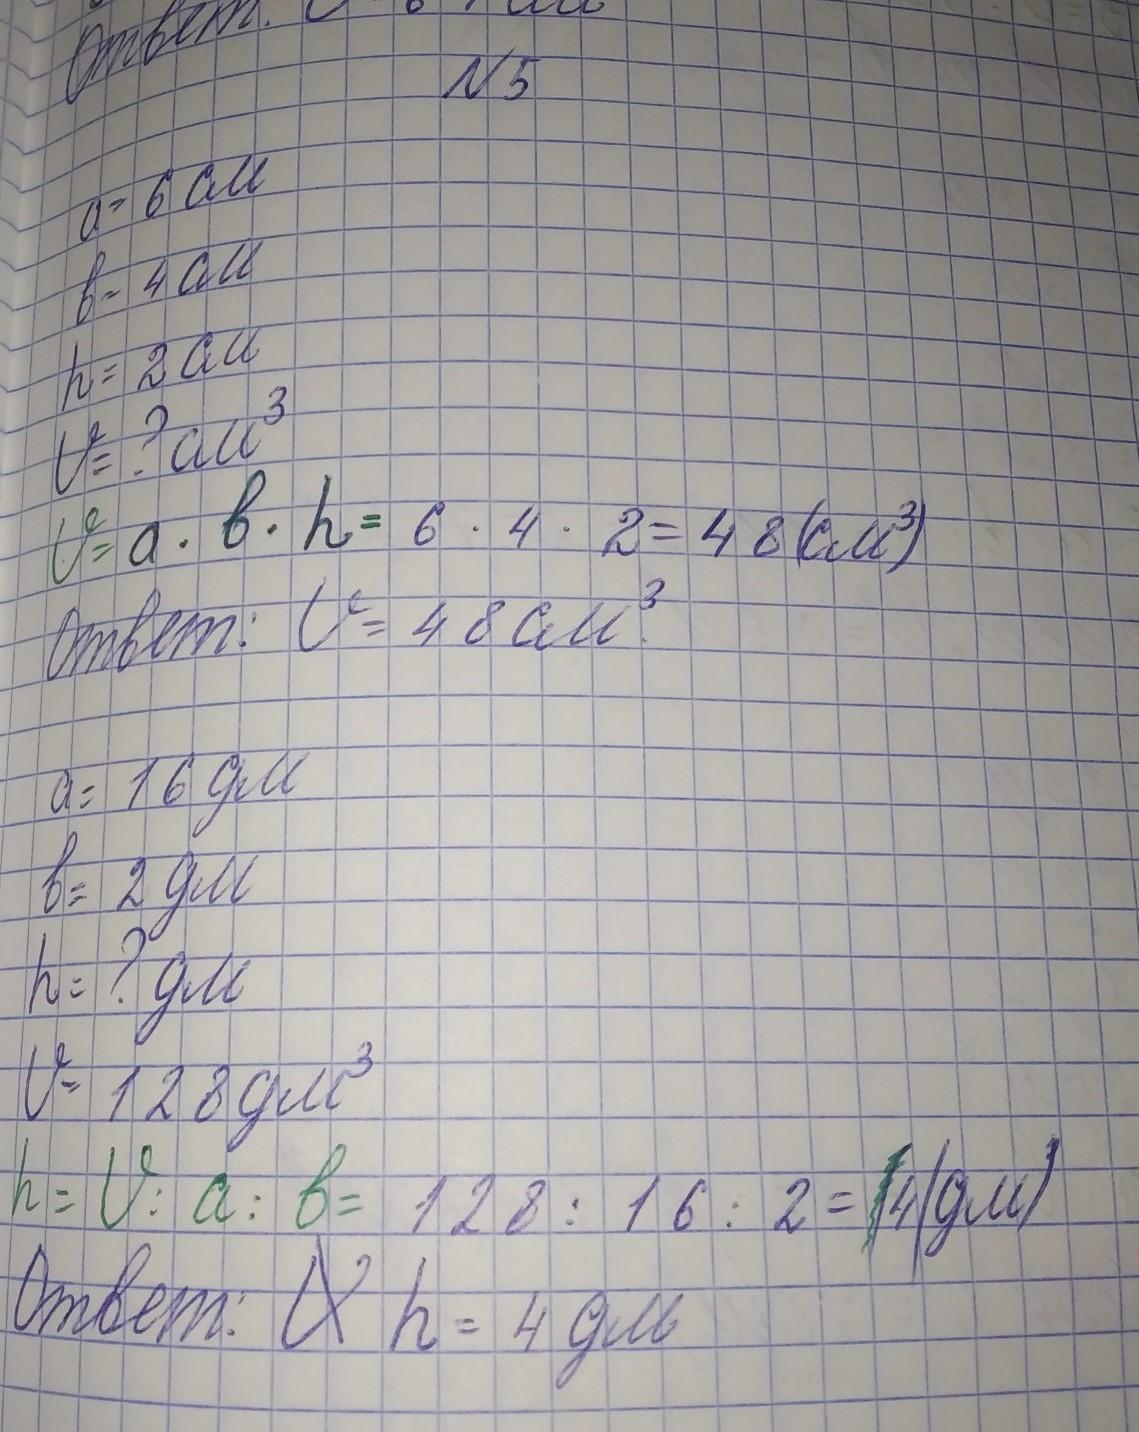 Ответ:
N5
a= 6 см
b= 4 см
h= 2 см
V= ? см³
V= a · b · h = 6 · 4 · 2 = 48 (см³)
Ответ: V= 48 см³.
a= 16 дм
b= 2 дм
h= ? дм
V= 128 дм³
h= V : a : b = 128 : 16 : 2 = 4 (дм)
Ответ: h = 4 дм